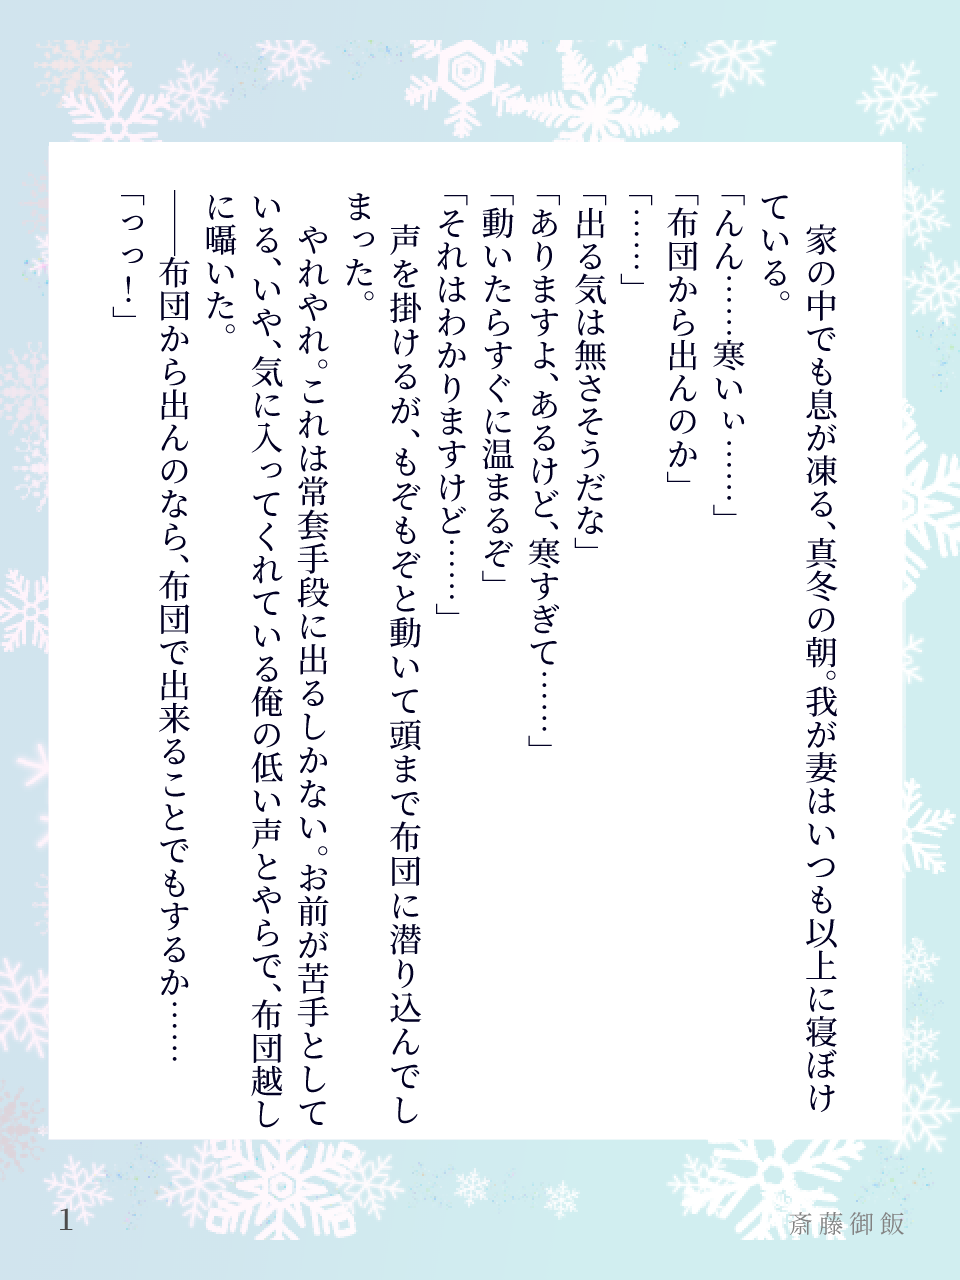 家の中でも息が凍る、真冬の朝。我が妻はいつも以上に寝ぼけ
ている。
「んん……寒いぃ……」
「布団から出んのか」
「……」
「出る気は無さそうだな」
「ありますよ、あるけど、寒すぎて……」
「動いたらすぐに温まるぞ」
「それはわかりますけど……」
　声を掛けるが、もぞもぞと動いて頭まで布団に潜り込んでし
まった。
　やれやれ。これは常套手段に出るしかない。お前が苦手として
いる、いや、気に入ってくれている俺の低い声とやらで、布団越し
に囁いた。
――布団から出んのなら、布団で出来ることでもするか……
「っっ！」
1
斎藤御飯